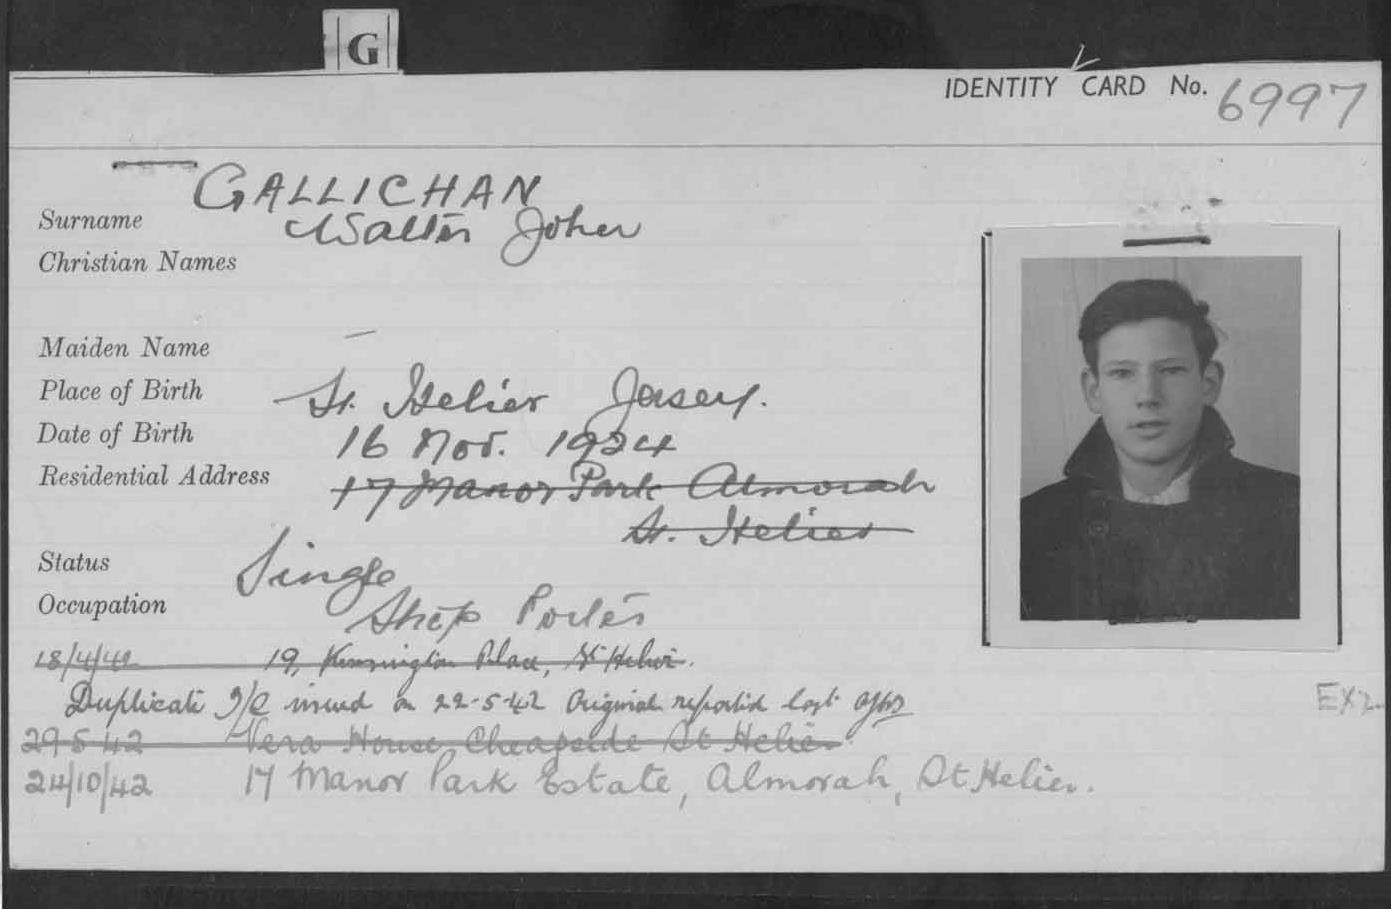 G
IDENTITY CARD No. 6997
Surname GALLICHAN
Christian Names Walter John
Maiden Name —
Place of Birth St. Helier Jersey.
Date of Birth 16 Nov. 1924
Residential Address 17 Manor Park Almorah
St. Helier
Status Single
Occupation Shop Porter
18/4/42 19, Kensington Place, St Helier.
Duplicate I/C issued on 22-5-42 Original reported lost
29 5 42 Vera House, Cheapside St Helier
24/10/42 17 Manor Park Estate, Almorah, St Helier.